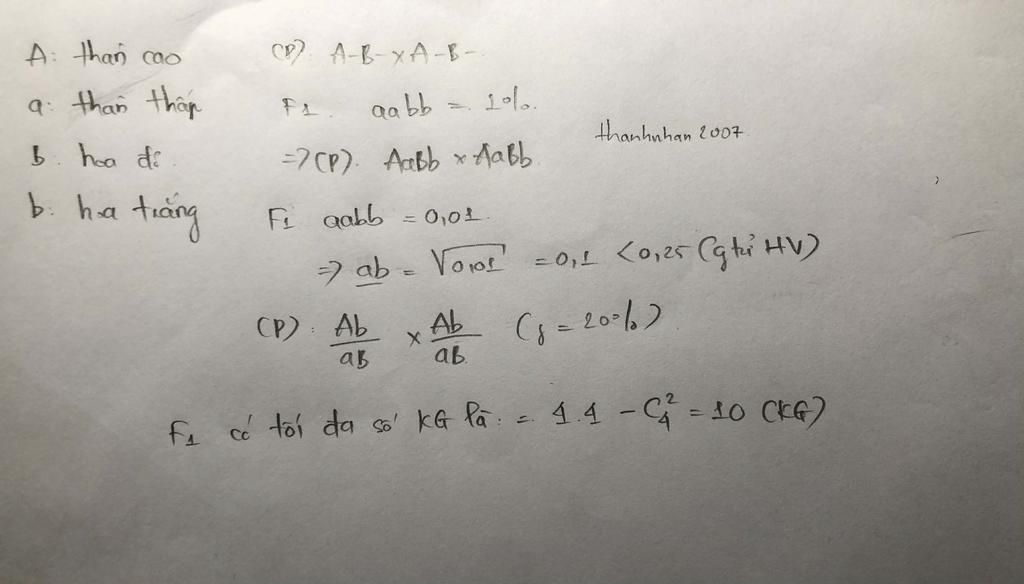 A: thân cao (P) A-B- x A-B-
a: thân thấp F1 aabb = 1%.
B: hoa đỏ => (P). AaBb x AaBb
thanhnhan 2007
b: hoa trắng F1 aabb = 0,01
=> ab = √0,01 = 0,1 < 0,25 (gtử HV)
(P): Ab/aB x Ab/aB (f = 20%)
F1 có tối đa số KG là: = 4.4 - C²₄ = 10 (KG)